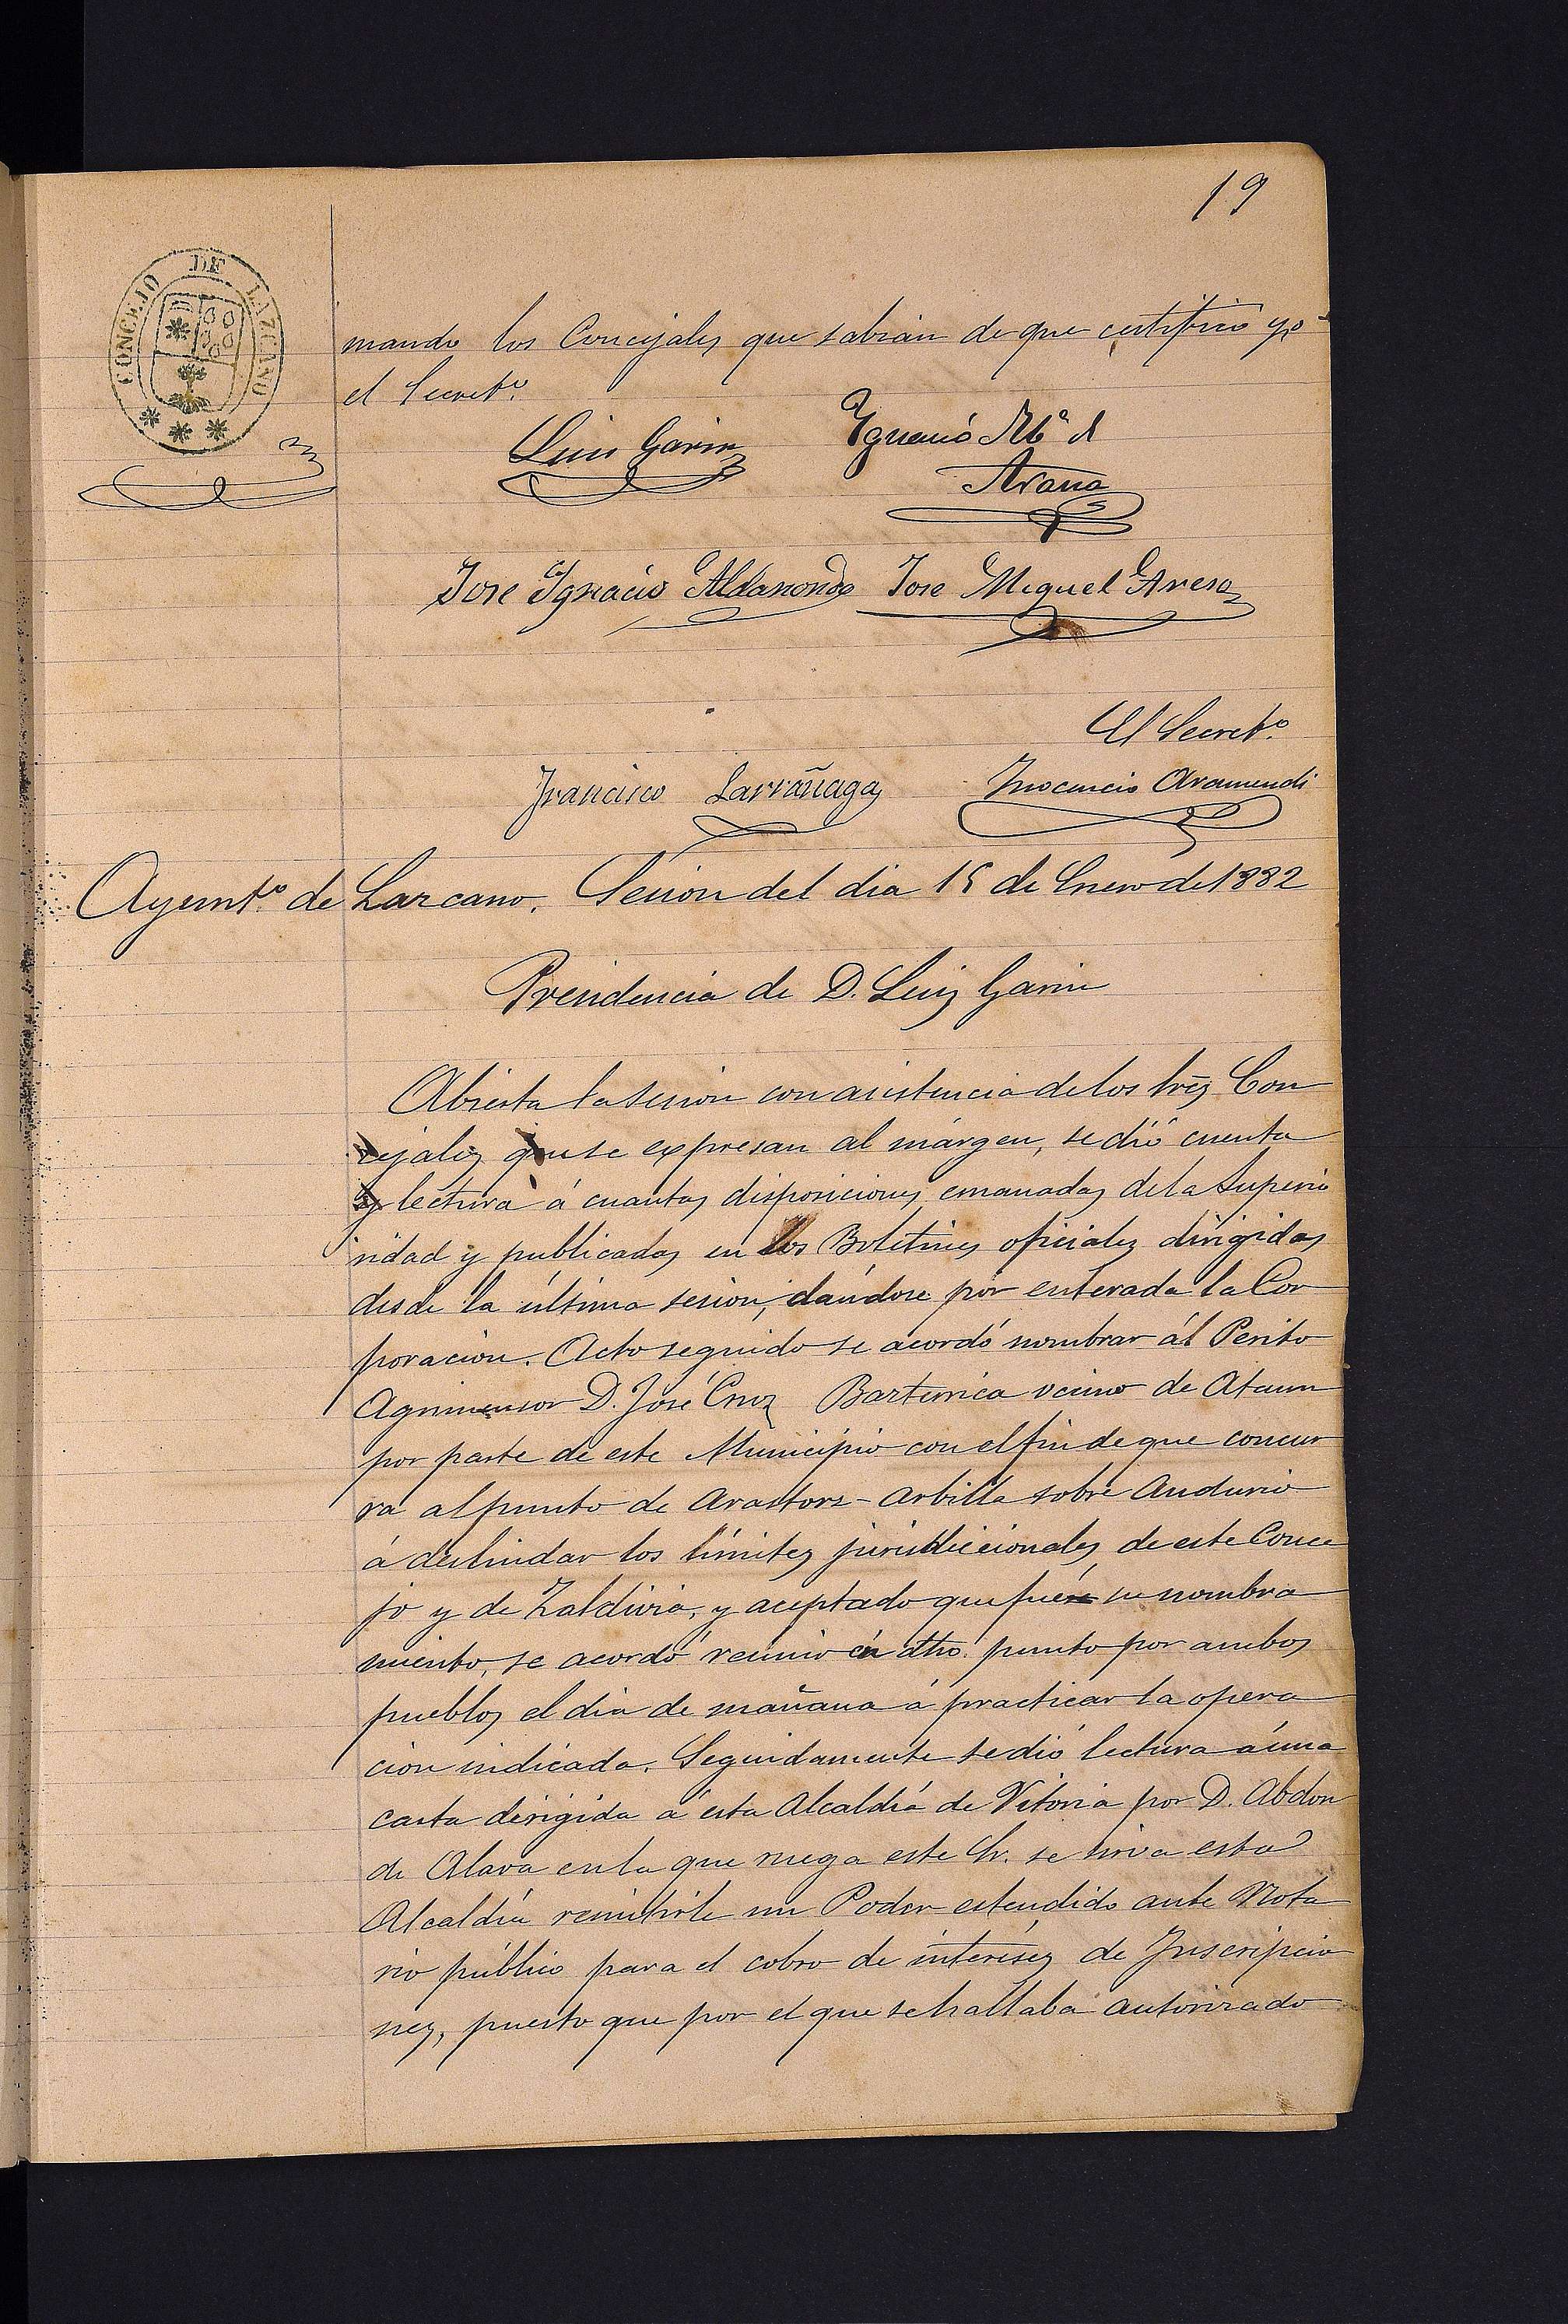 19
CONCEJO DE LAZCANO
mando los Concejales que sabian de que certifico yo
el Secret.º
Luis Garin Ygnacio M.ª d
Arana
Jose Ygnacio Aldasondo Jose Miguel
El Secret.º
Francisco Larrañaga Inocencio Aramendi
Ayunt.º de Lazcano. Sesion del dia 15 de Enero de 1882
Presidencia de D. Luis Garin
Abierta la sesion con asistencia de los Sres Con
cejales que se expresan al márgen, se dió cuenta
y lectura á cuantas disposiciones emanadas de la Superio
ridad y publicadas en los Boletines oficiales dirigidas
desde la última sesion, dándose por enterada la Cor
poracion. Acto seguido se acordó nombrar ál Perito
Agrimensor D. José Cruz vecino de Ataun
por parte de este Municipio con el fin de que concur
ra al punto de Arastorz-Arbilla sobre
á deslindar los límites jurisdiccionales de este Conce
jo y de Zaldivia, y aceptado que fué su nombra
miento, se acordó reunir en dho. punto por ambos
pueblos el dia de mañana á practicar la opera
cion indicada. Seguidamente se dió lectura á una
carta dirigida á esta Alcaldía de Vitoria por D. Abdon
de Alava en la que ruega este Sr. se sirva esta
Alcaldía remitirle un Poder estendido ante Nota
rio público para el cobro de interéses de Inscripcio
nes, puesto que por el que se hallaba autorizado